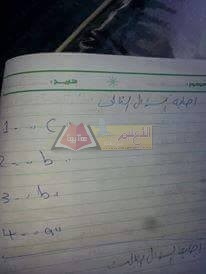 اجابة السؤال الثاني
1 - - C
2 - - b
3 - - b
4 - - a
اجابة السؤال الثالث